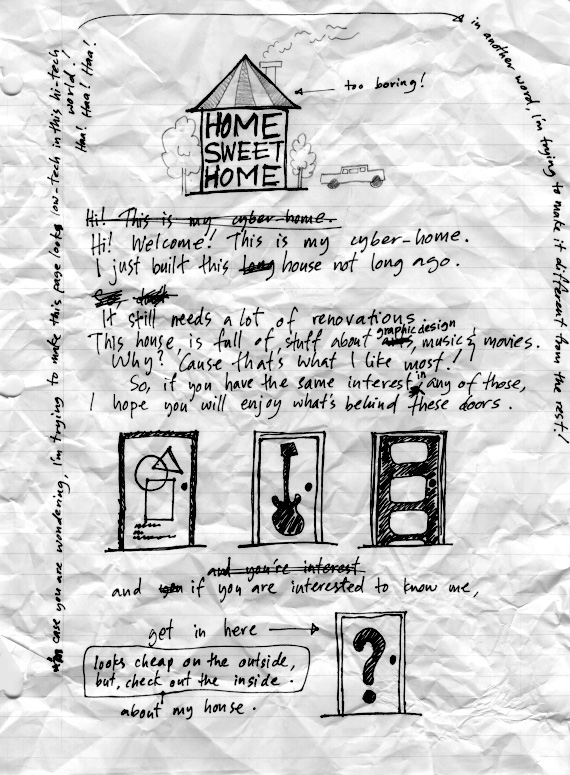 in case you are wondering, I'm trying to make this page looks low-tech in this hi-tech
world!
Haa! Haa! Haa!
in another word, i'm trying to make it different from the rest!
too boring!
HOME
SWEET
HOME
Hi! This is my cyber-home.
Hi! Welcome! This is my cyber-home.
I just built this long house not long ago.
It still needs a lot of renovations.
This house, is full of stuff about graphic design, music & movies.
Why? Cause that's what I like most!!
So, if you have the same interest in any of those,
I hope you will enjoy what's behind these doors.
and you're interest
and if you are interested to know me,
get in here
?
looks cheap on the outside,
but, check out the inside.
about my house.